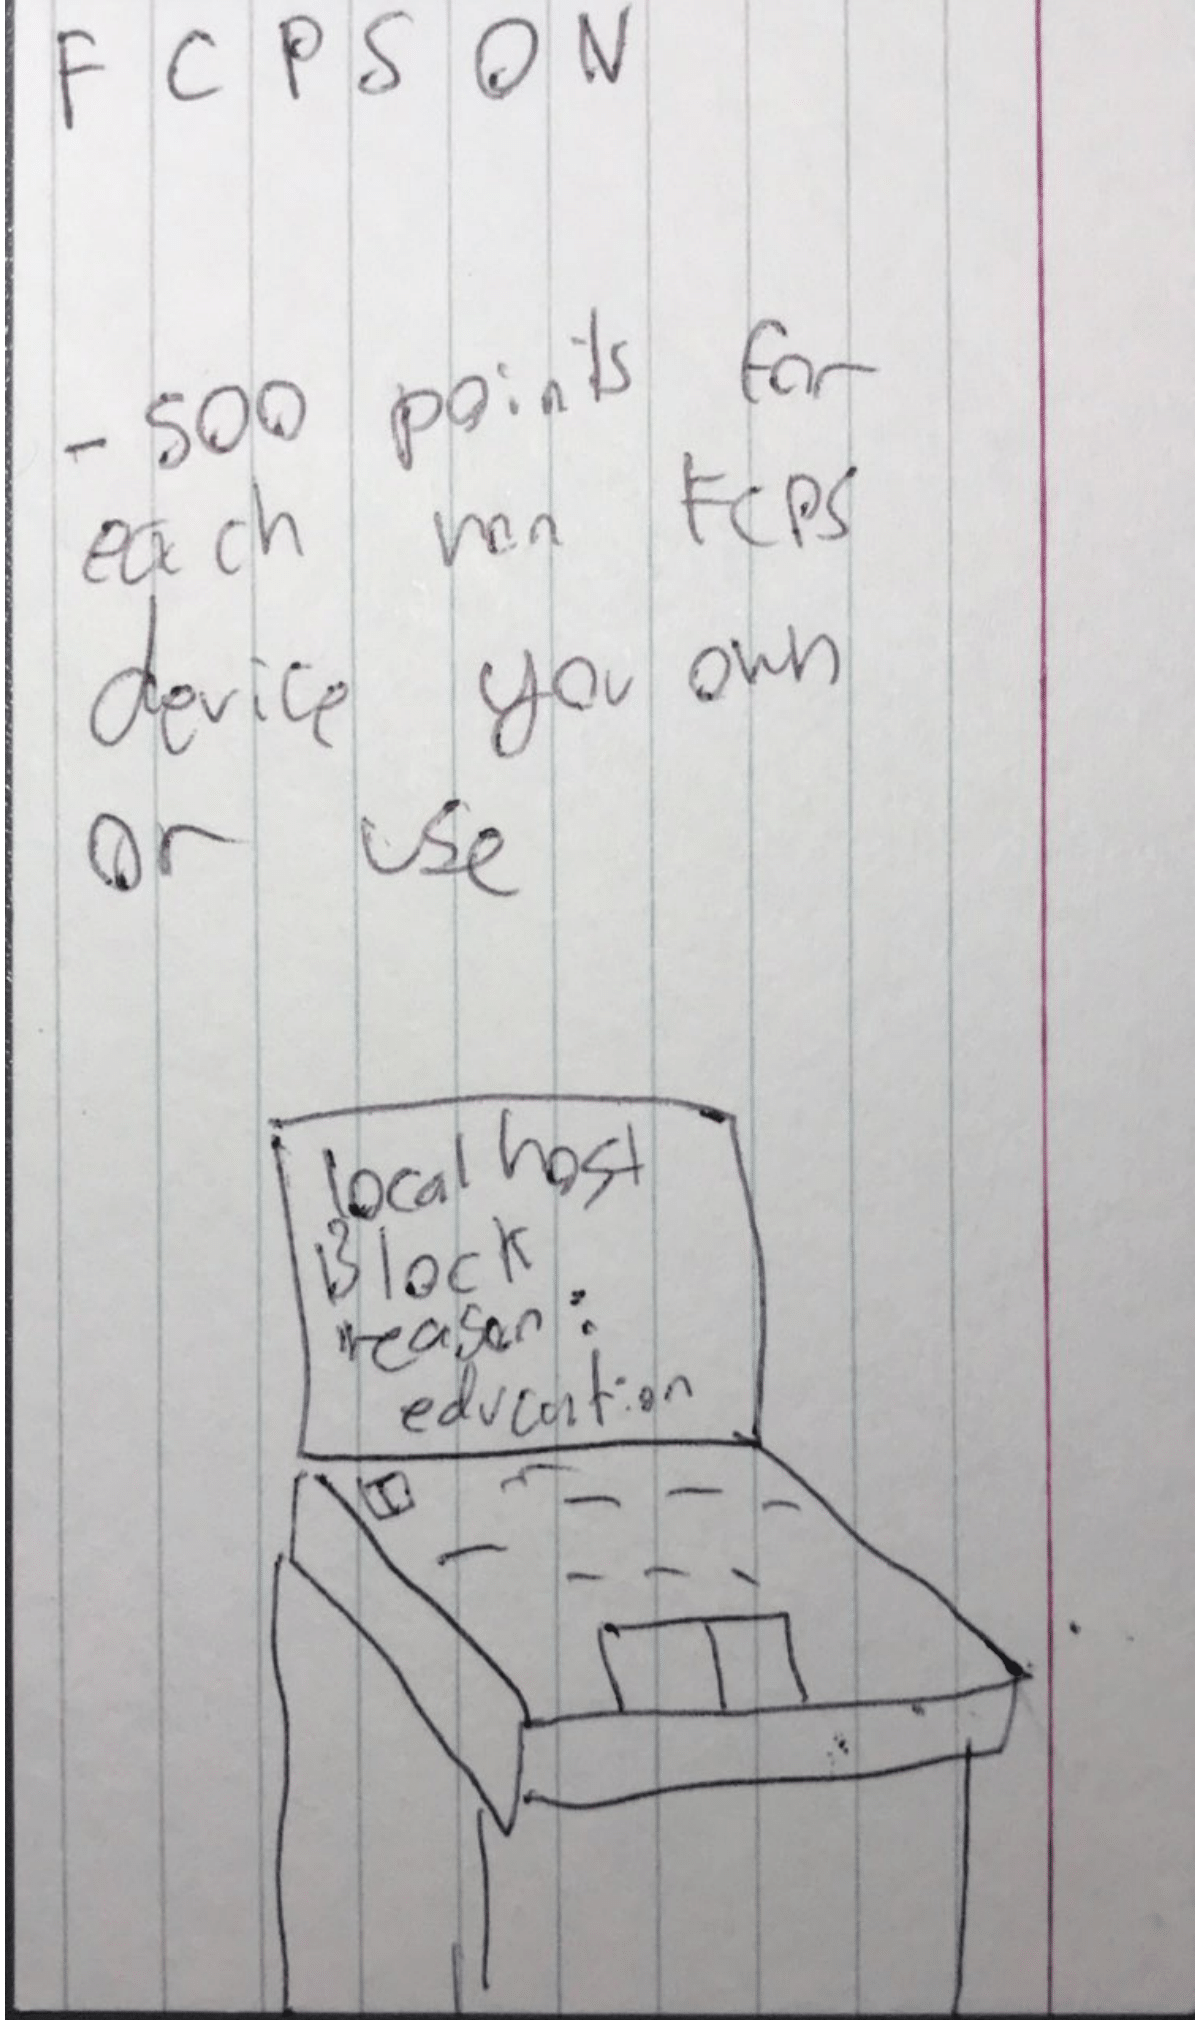 F C P S O N
- 500 points for
each non FCPS
device you own
or use
localhost
Block
reason:
education